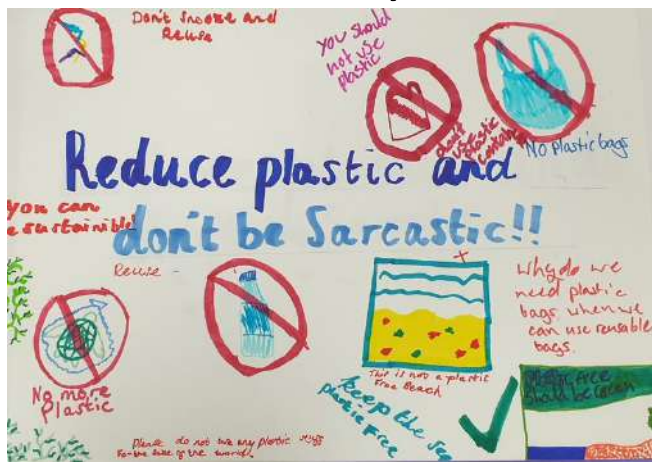 Don't Snooze and
Reuse
you should
not use
plastic
don't
use
plastic
NO Plastic bags
Reduce plastic and
don't be Sarcastic!!
you can
e sustainible!
Reuse -
Why do we
need plastic
bags when we
can use reusable
bags.
No more
Plastic
This is not a plastic
Free Beach
keep the sea
plastic Free
Plastic free
Should be
Please do not use any plastic
for the sake of the world.